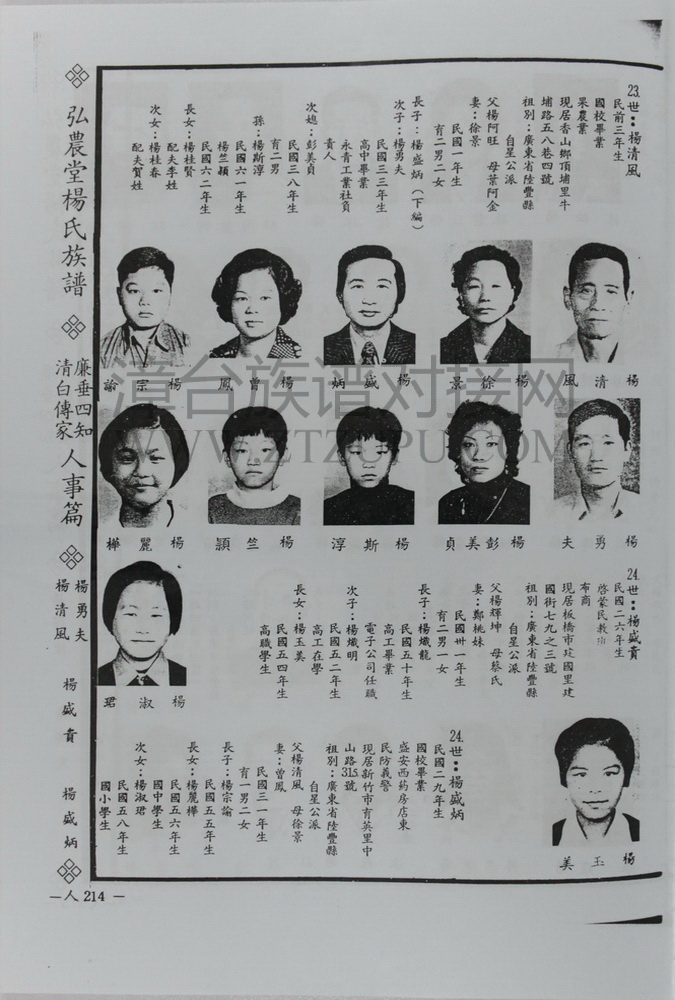 弘農堂楊氏族譜
廉垂四知
清白傳家
人事篇
楊勇夫
楊清風
楊盛貴
楊盛炳
—人 214 —
23.世：楊清風
民前三年生
國校畢業
果農業
現居香山鄉頂埔里牛
埔路五八巷四號
祖別：廣東省陸豐縣
自星公派
父楊阿旺 母葉阿金
妻：徐景
民國一年生
育二男二女
長子：楊盛炳（下編）
次子：楊勇夫
民國三三年生
高中畢業
永青工業社負
責人
次媳：彭美貞
民國三八年生
育二男
孫：楊斯淳
民國六一年生
楊竺穎
民國六二年生
長女：楊桂賢
配夫李姓
次女：楊桂春
配夫賀姓
楊清風
楊徐景
楊盛炳
楊曾鳳
楊宗諭
楊勇夫
楊彭美貞
楊斯淳
楊竺穎
楊麗樺
24.世：楊盛貴
民國二六年生
啓蒙民教班
布商
現居板橋市玟國里建
國街七九之三號
祖別：廣東省陸豐縣
自星公派
父楊輝坤 母蔡氏
妻：鄭桃妹
民國卅一年生
育二男一女
長子：楊熾龍
民國五十年生
高工畢業
電子公司任職
次子：楊熾明
民國五二年生
高工在學
長女：楊玉美
民國五四年生
高職學生
楊淑珺
24.世：楊盛炳
民國二九年生
國校畢業
盛安西葯房店東
民防義警
現居新竹市育英里中
山路315號
祖別：廣東省陸豐縣
自星公派
父楊清風 母徐景
妻：曾鳳
民國三一年生
育一男二女
長子：楊宗諭
民國五五年生
長女：楊麗樺
民國五六年生
國中學生
次女：楊淑珺
民國五八年生
國小學生
楊玉美
漳台族谱对接网
WWW.ZTZUPU.COM